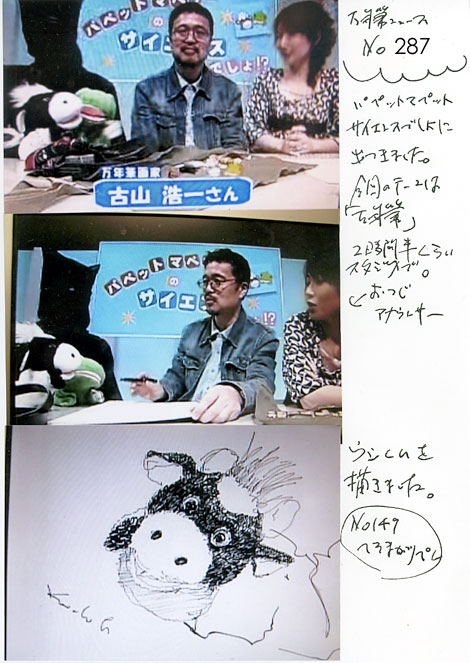 パペットマペット
の
サイエンス
でしょ!?
万年筆画家
古山 浩一さん
パペットマペ
の
サイエ
!?
万年筆ニュース
No 287
パペットマペット
サイエンスでしょに
出てきました。
今回のテーマは
「万年筆」
2時間半くらい
スタジオで。
アナウンサー
ウシくんを
描きました。
No149